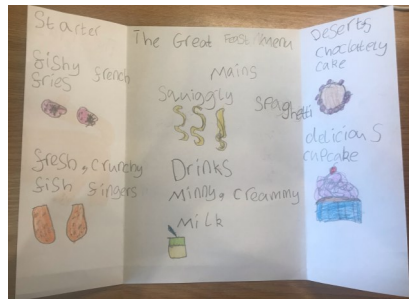 Starter
fishy french
fries
fresh, crunchy
fish fingers
The Great Feast Menu
Mains
Squiggly
spaghetti
Drinks
Minny, creammy
Milk
Deserts
choclately
cake
delicious
cupcake